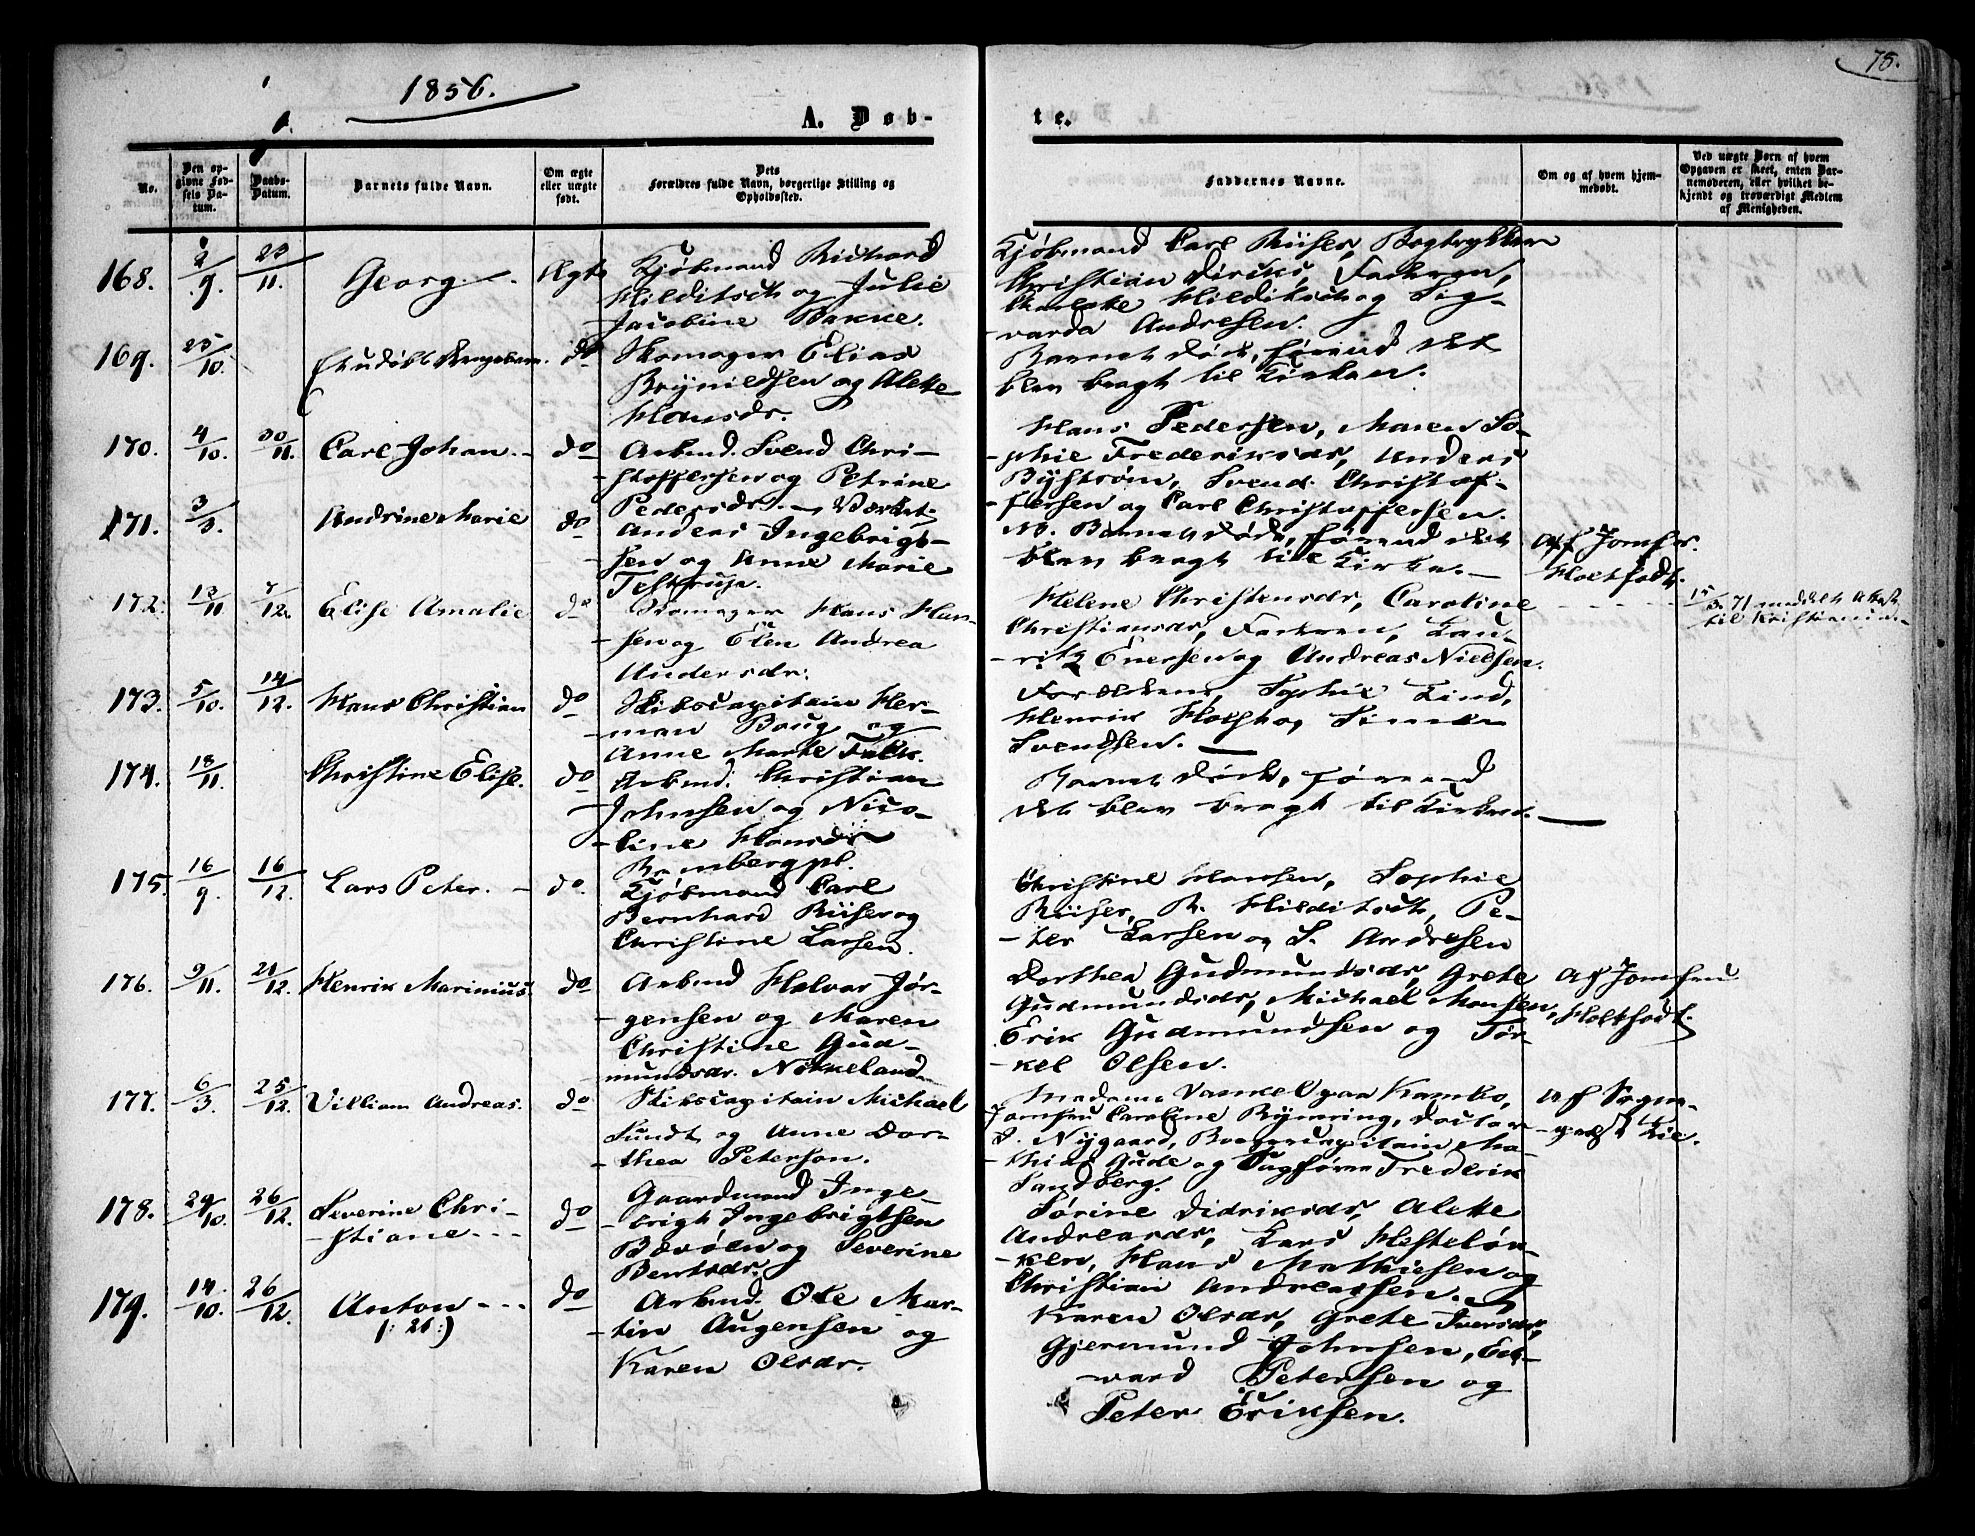 1856.
75.
A. Døb-
te.
No.
Den op-
givne Fød-
sels Da-
tum.
Daabs-
Datum.
Barnets fulde Navn.
Om ægte
eller uægte
født.
Dets
Forældres fulde Navn, borgerlige Stilling og
Opholdssted.
Faddernes Navne.
Om og af hvem hjem-
medøbt.
Ved uægte Børn af hvem
Opgaven er skeet, enten Bar-
nemoderen, eller hvilket be-
kjendt og troværdigt Medlem
af Menigheden.
168. 2/9. 23/11. Georg Ægte
Kjøbmand Richard
Hilditsch og Julie
Jacobine Bakke.
Kjøbmand Carl Riiser, Bogtrykker
Christian Diriks, Faderen,
Hilditsch og Sig-
varda Andresen.
169. 25/10. do
Skomager Elias
Brynildsen og Alette
Hansdr.
Barnet døde, førend det
blev bragt til Kirken.
170. 4/10. 30/11. Carl Johan. do
Arbmd. Svend Chri-
stoffersen og Petrine
Pedersdr.
Hans Pedersen, Maren So-
phie Frederiksdr, Anders
Byström, Svend Christof-
fersen og Carl Christoffersen.
171. 3/3. Andrine Marie do
Anders Ingebrigt-
sen og Anne Marie
Testrup.
N. Barnet døde, førend det
blev bragt til Kirke.
Af Jomfr.
Holtfodt.
172. 13/11 7/12. Elise Amalie do
Skomager Hans Han-
sen og Elen Andrea
Andersdr.
Helene Christensdr, Caroline
Christiansdr, Faderen, Lau-
ritz Enersen og Andreas Nielsen.
15/3. 71 meddelt Attest
til Kristiania.
173. 5/10. 14/12. Hans Christian do
Skibscapitain Her-
man Boug og
Anne Marte Falk.
Forældrene, Sophie Lind,
Henrik Holst og Simen
Svendsen.
174. 18/11. Christine Elise. do
Arbmd. Christian
Johnsen og Nico-
line Hansdr
Rambergpl.
Barnet døde, førend
det blev bragt til Kirken.
175. 16/9. 16/12. Lars Peter. do.
Kjøbmand Carl
Bernhard Riiser og
Christine Larsen.
Christine Hansen, Sophie
Riiser, R. Hilditsch, Pe-
ter Larsen og S. Andresen
176. 9/11. 21/12. Henrik Marinius. do
Arbmd Halvor Jør-
gensen og Maren
Christine Gud-
mundsdr. Nøkkeland
Dorthea Gudmundsdr, Grete
Gudmundsdr, Michael Monsen,
Erik Gudmundsen og Tor-
kel Olsen.
Af Jomfru
Holtfodt.
177. 6/3. 25/12. Villiam Andreas. do
Skibscapitain Michael
Sundt og Anne Dor-
thea Peterson.
Madame Vankel paa Kambo,
Jomfru Caroline Rynning, Doctor
Nygaard, Borgercapitain Ma-
thias Gude og Sagfører Frederik
Sandberg.
Af Sogne-
præst Lie.
178. 29/10. 26/12. Severine Chri-
stiane do
Gaardmand Inge-
brigt Ingebrigtsen
Bævølen og Severine
Bentsdr.
Sørine Didriksdr, Alette
Andreasdr, Lars Hesteløk-
ken, Hans Mathiesen og
Christian Andreassen.
179. 14./10. 26/12. Anton
(: 26 :) do
Arbmd. Ole Mar-
tin Augensen og
Karen Olsdr.
Karen Olsdr, Grete Iversdr,
Gjermund Johnsen, Ed-
vard Petersen og
Peter Eriksen.